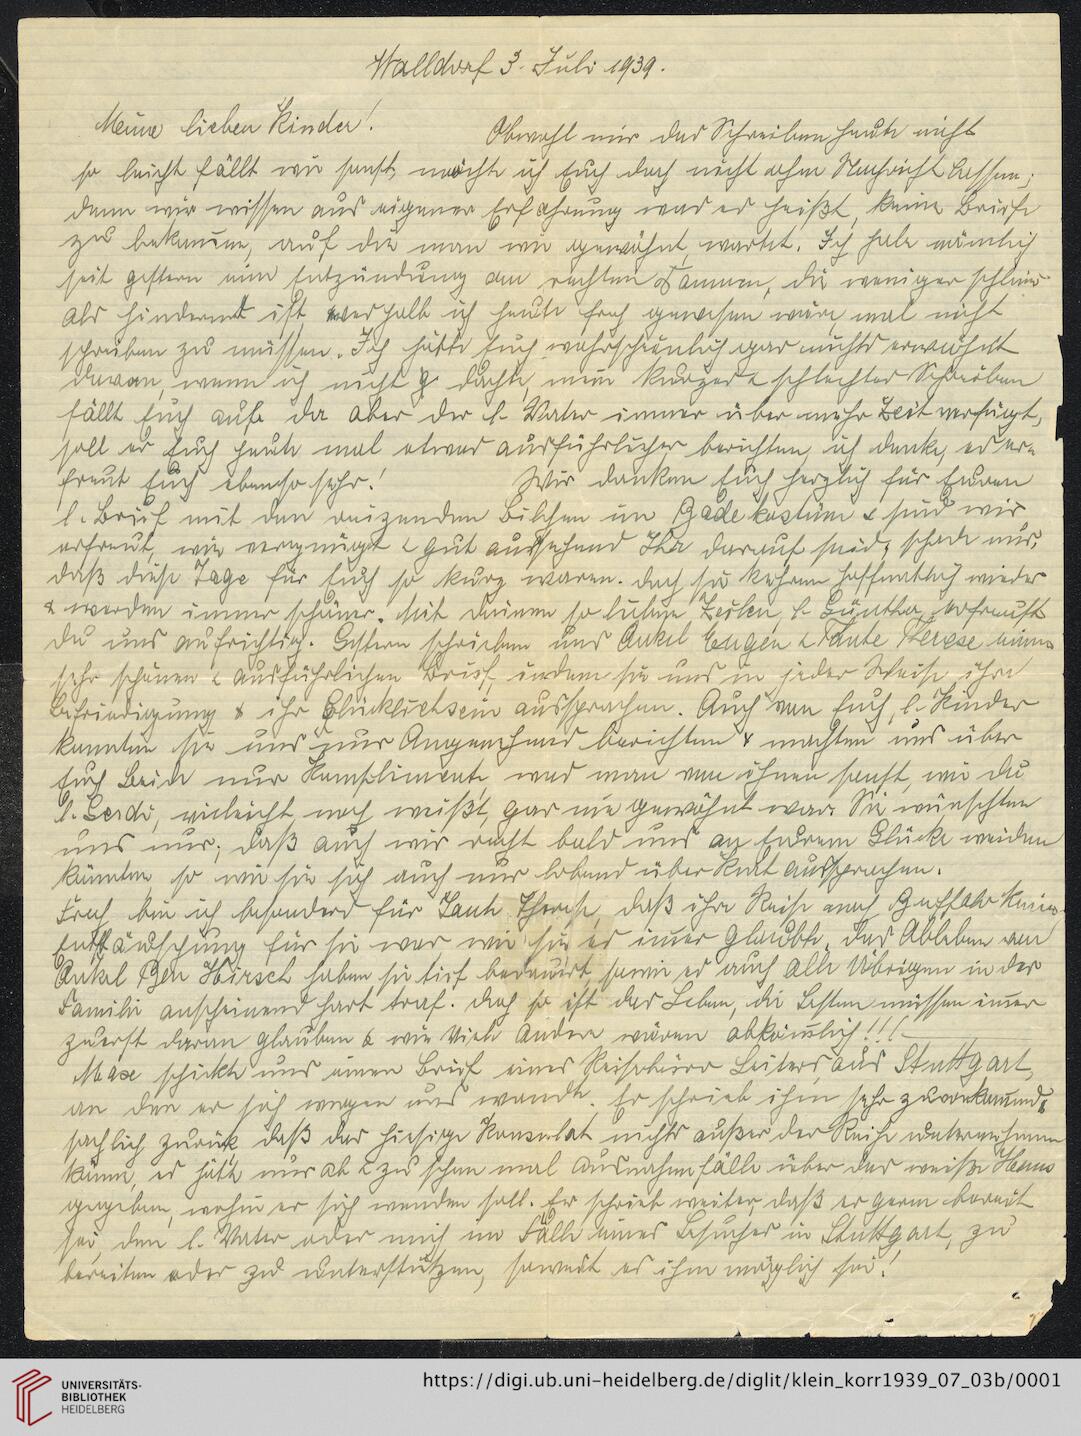 Walldorf 3. Juli 1939.
Meine lieben Kinder! Obwohl mir das Schreiben heute nicht
so leicht fällt wie sonst, möchte ich Euch doch nicht ohne Nachricht lassen,
denn wir wissen aus eigener Erfahrung was es heißt, keine Briefe
zu bekommen, auf die man wie gewöhnt, wartet. Ich habe nämlich
seit gestern eine Entzündung am rechten Daumen, die weniger schlimm
als hindernd ist, weshalb ich heute froh gewesen wäre, mal nicht
schreiben zu müssen. Ich hätte Euch wahrscheinlich gar nichts erwähnt
davon, wenn ich nicht dächte, mein kurzes & schlechtes Schreiben
fällt Euch auf. Da aber der l. Vater immer über mehr Zeit verfügt,
soll er Euch heute mal etwas ausführlicher berichten, ich denke, es er-
freut Euch ebenso sehr! Wir danken Euch herzlich für Euren
l. Brief mit den reizenden Bilchen im Badekostüm & sind wir
erfreut, wie vergnügt & gut aussehend Ihr darauf seid, schade nur,
daß diese Tage für Euch so kurz waren. doch sie kehren hoffentlich wieder
& werden immer schöner. Mit Deinen so lieben Zeilen, l. Günther, erfreust
Du uns aufrichtig. Gestern schrieben uns Onkel Eugen & Tante Therese einen
sehr schönen & ausführlichen Brief, indem sie uns in jeder Weise ihre
Befriedigung & ihr Glücklichsein aussprachen. Auch von Euch, l. Kinder
konnten sie uns nur Angenehmes berichten & machten uns über
Euch Beide nur Komplimente, was man von ihnen sonst, wie Du
l. Gerdi, vielleicht noch weißt, gar nie gewöhnt war. Sie wünschten
uns nur, daß auch wir recht bald uns an Eurem Glücke weiden
könnten, so wie sie sich auch nur lobend über Kurt aussprachen.
Froh, bin ich besonders für Tante Therese, daß ihre Reise nach Buffalo keine
Enttäuschung für sie war wie sie es immer glaubte. Das Ableben von
Onkel Ben Hirsch haben sie tief bedauert, sowie es auch alle Übrigen in der
Familie anscheinend hart traf. doch so ist das Leben, die Besten müssen immer
zuerst daran glauben & wie viele Andere wären abkömlich!!!
Max schickte uns einen Brief eines Reisebüro Leiters, aus Stuttgart,
an den er sich wegen uns wandte. Er schrieb ihm sehr zuvorkommend &
sachlich zurück daß das hiesige Konsulat nichts außer der Reihe unternehmen
könne, es hätte nur ab & zu schon mal Ausnahmefälle über das weiße Haus
gegeben, wohin er sich wenden soll. Er schrieb weiter, daß er gerne bereit
sei, den l. Vater oder mich im Falle eines Besuches in Stuttgart, zu
oder zu unterstützen, soweit es ihm möglich sei!
UNIVERSITÄTS-
BIBLIOTHEK
HEIDELBERG
https://digi.ub.uni-heidelberg.de/diglit/klein_korr1939_07_03b/0001